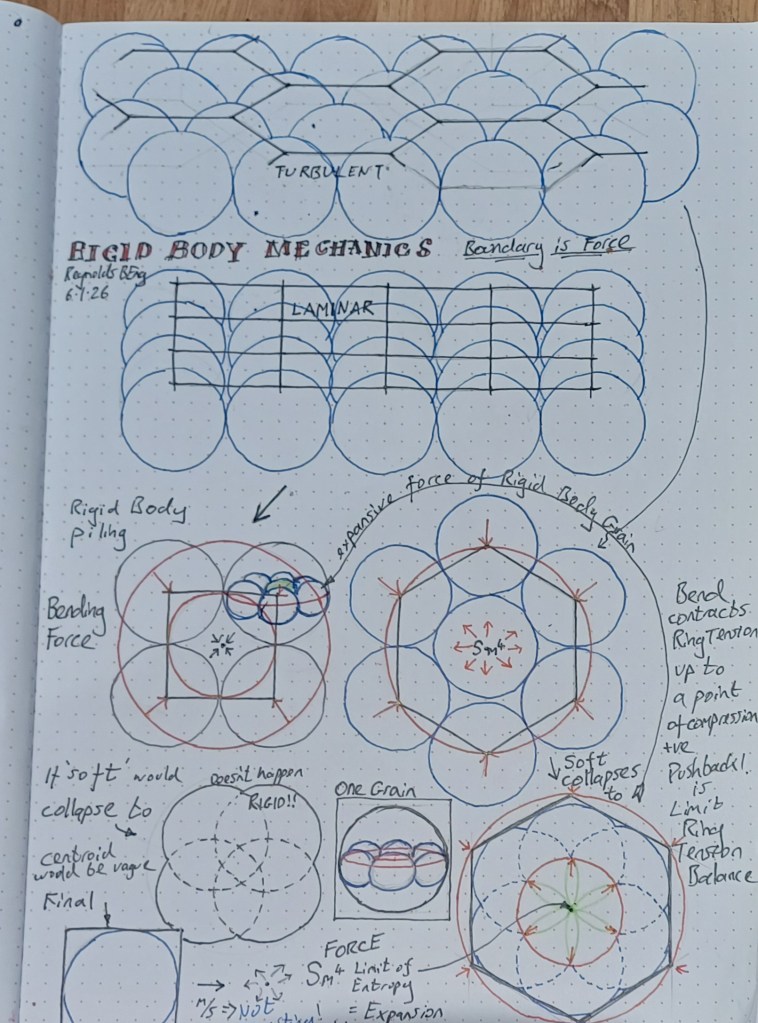 TURBULENT
RIGID BODY MECHANICS
Boundary is Force
Reynolds BEng
LAMINAR
expansive force of Rigid Body Grain
Rigid Body
piling
Bending
Force
Sm⁴
Bend
contracts
Ring Tension
up to
a point
of compression
+ve
Pushback!
is
Limit
Ring
Tension
Balance
If 'soft' would
collapse to
centroid
would be vague
doesn't happen
RIGID!!
One Grain
↓ Soft
collapses
to
Final
FORCE
Sm⁴ Limit of
Entropy
= Expansion
m/s => Not